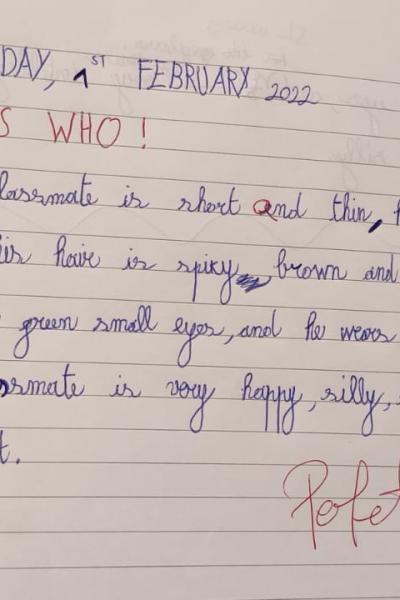 DAY, 1ST FEBRUARY 2022
S WHO!
lassmate is short and thin,
is hair is spiky brown and
green small eyes, and he wears
ssmate is very happy, silly,
t.